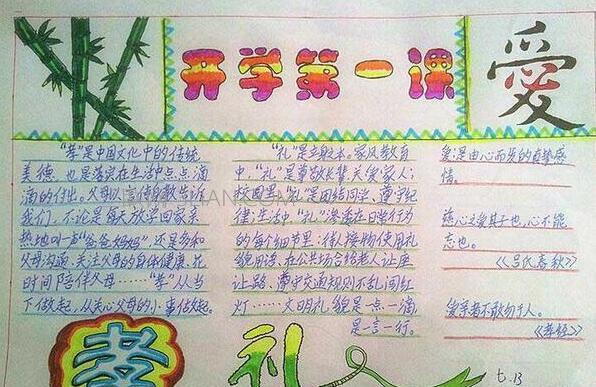 开学第一课
爱
“孝”是中国文化中的传统
美德,也是落实在生活中点点滴
滴的付出。父母以言传身教告诉
我们,不论是每天放学回家亲
热地叫一声“爸爸妈妈”,还是多和
父母沟通,关注父母的身体健康、花
时间陪伴父母……“孝”从当
下做起,从关心父母的小事做起。
“礼”是立身之本。家风教育
中,“礼”是尊敬长辈关爱家人;
校园里,“礼”是团结同学、遵守纪
律;生活中,“礼”渗透在日常行为
的每个细节里:待人接物使用礼
貌用语、在公共场合给老人让座
让路、遵守交通规则不乱闯红
灯……文明礼貌是一点一滴,
是一言一行。
爱:是由心而发的真挚感
情。
慈心之爱其子也,心不能
忘也。
《吕氏春秋》
爱亲者不敢恶于人。
《孝经》
孝
礼
七.13